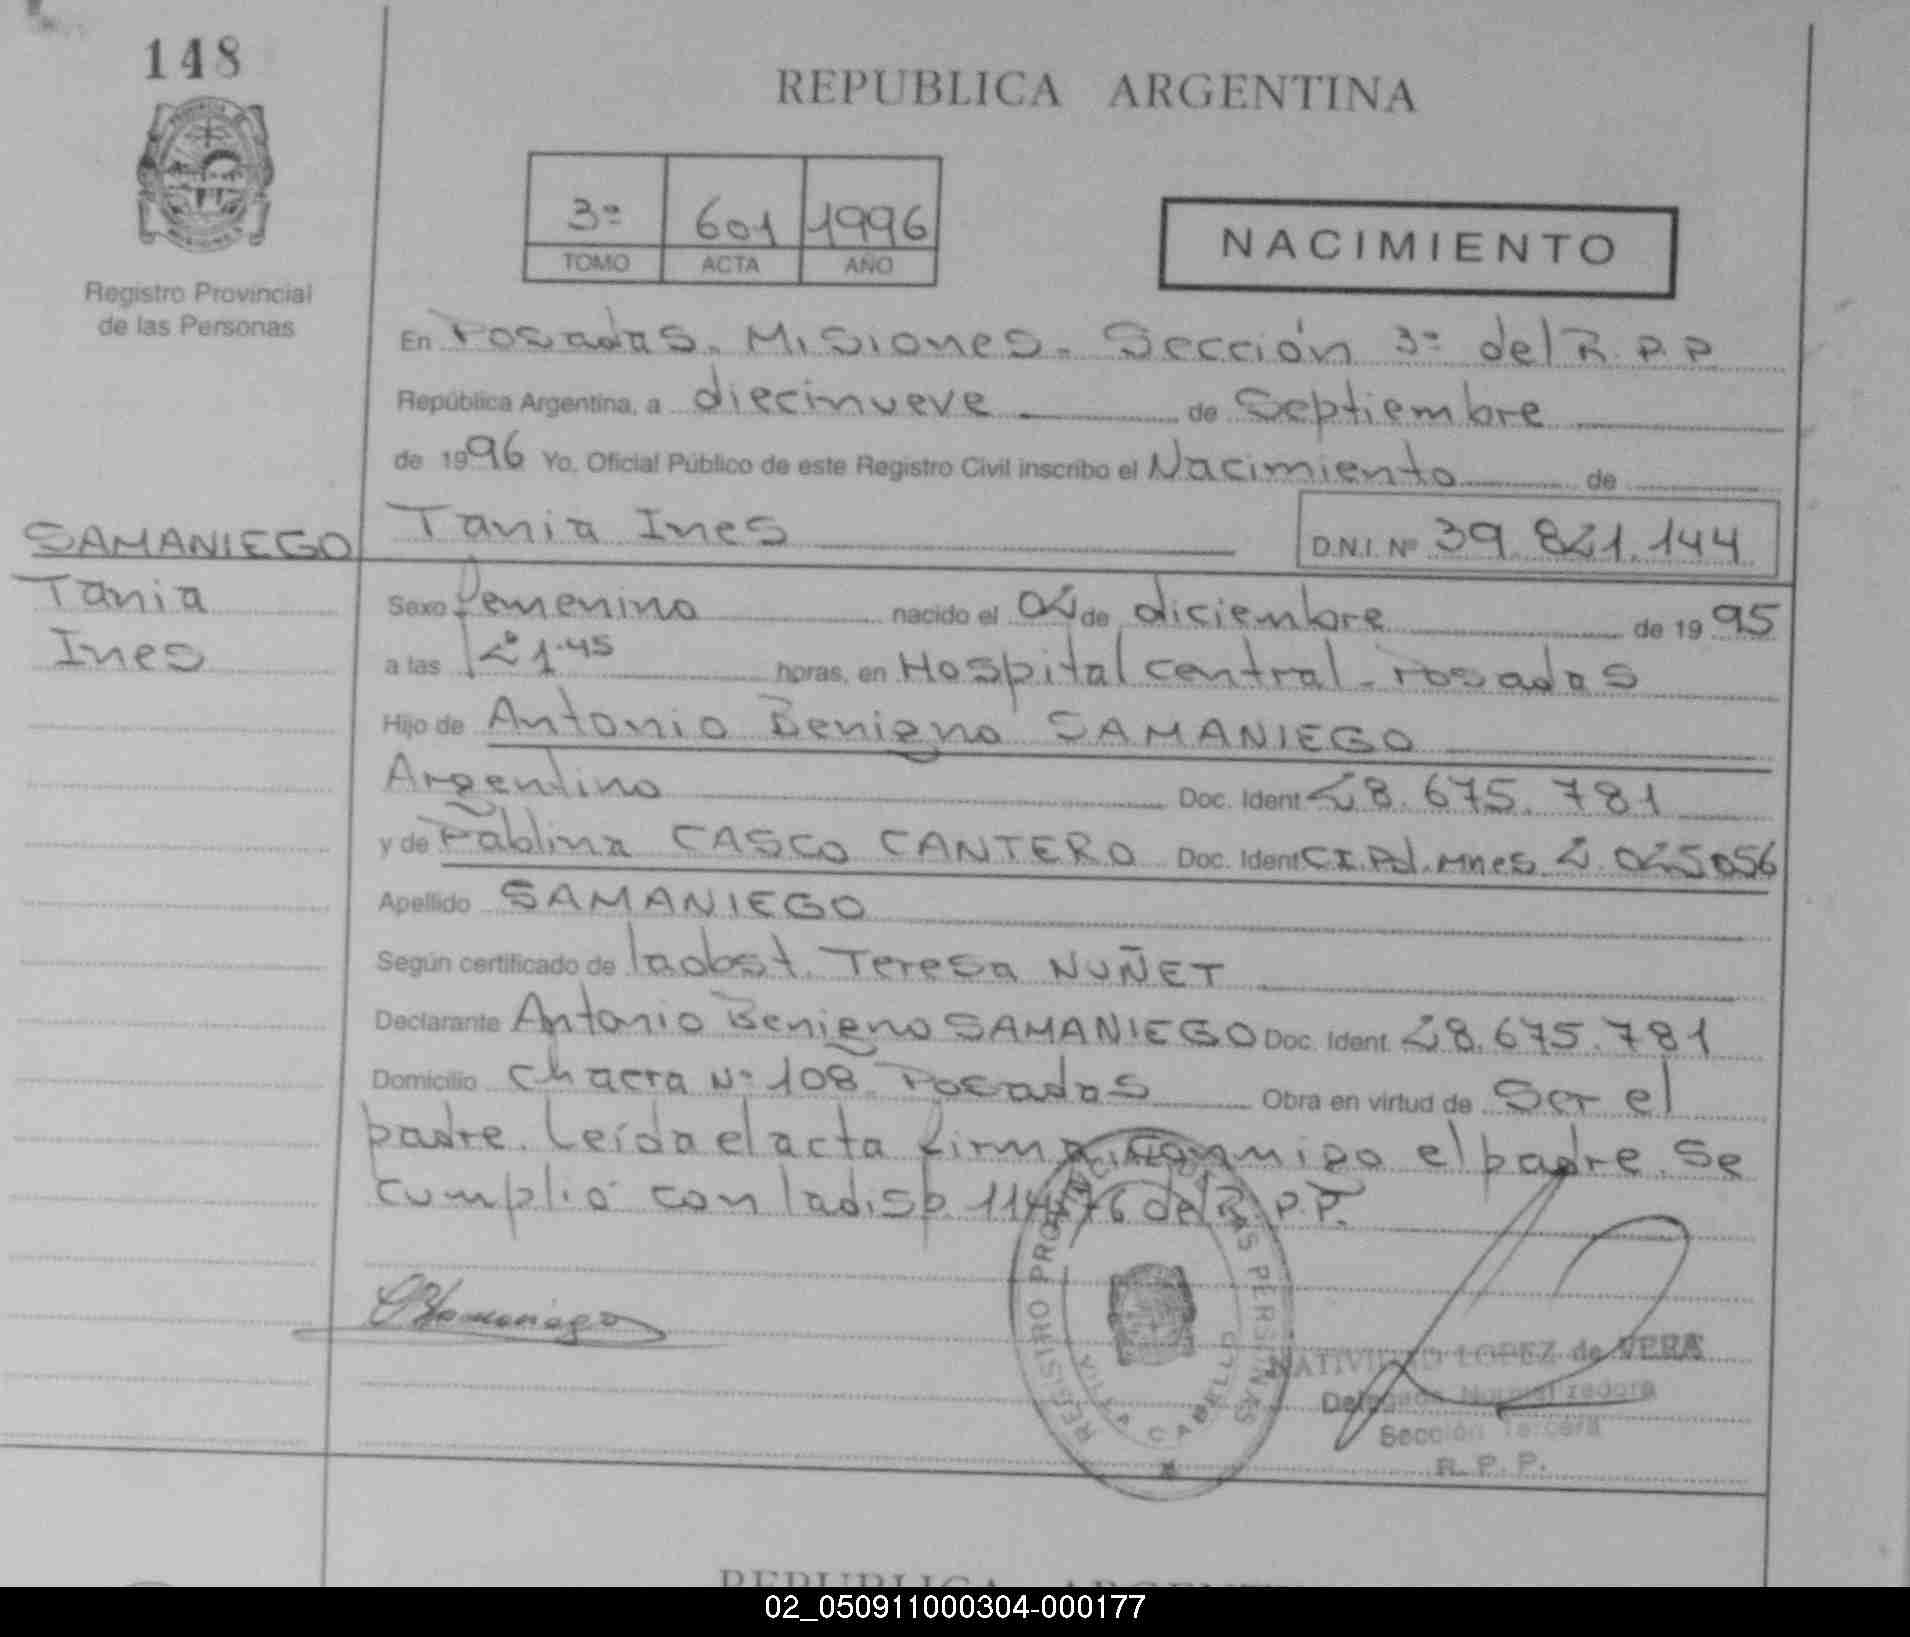 148
REPUBLICA ARGENTINA
3º 601 1996
TOMO ACTA AÑO
NACIMIENTO
Registro Provincial
de las Personas
En Posadas. Misiones. Sección 3º del R.P.P
República Argentina, a diecinueve de Septiembre
de 1996 Yo, Oficial Público de este Registro Civil inscribo el Nacimiento de
SAMANIEGO Tania Ines D.N.I. Nº 39.821.144
Tania
Ines
Sexo femenino nacido el 02 de diciembre de 1995
a las 21.45 horas, en Hospital central. Posadas
Hijo de Antonio Benigno SAMANIEGO
Argentino Doc. Ident 28.675.781
y de Pablina CASCO CANTERO Doc. Ident C.I.Pol.Mnes. 2.025056
Apellido SAMANIEGO
Según certificado de la obst. Teresa NUÑET
Declarante Antonio Benigno SAMANIEGO Doc. Ident. 28.675.781
Domicilio Chacra Nº 108 Posadas Obra en virtud de Ser el
padre. Leída el acta firma conmigo el padre. Se
cumplió con la disp. 114/76 del R.P.P.
REGISTRO PROVINCIAL DE LAS PERSONAS
VILLA CABELLO
NATIVIDAD LOPEZ de VERA
Delegada Normalizadora
Sección Tercera
R. P. P.
REPUBLICA ARGENTINA
02_050911000304-000177